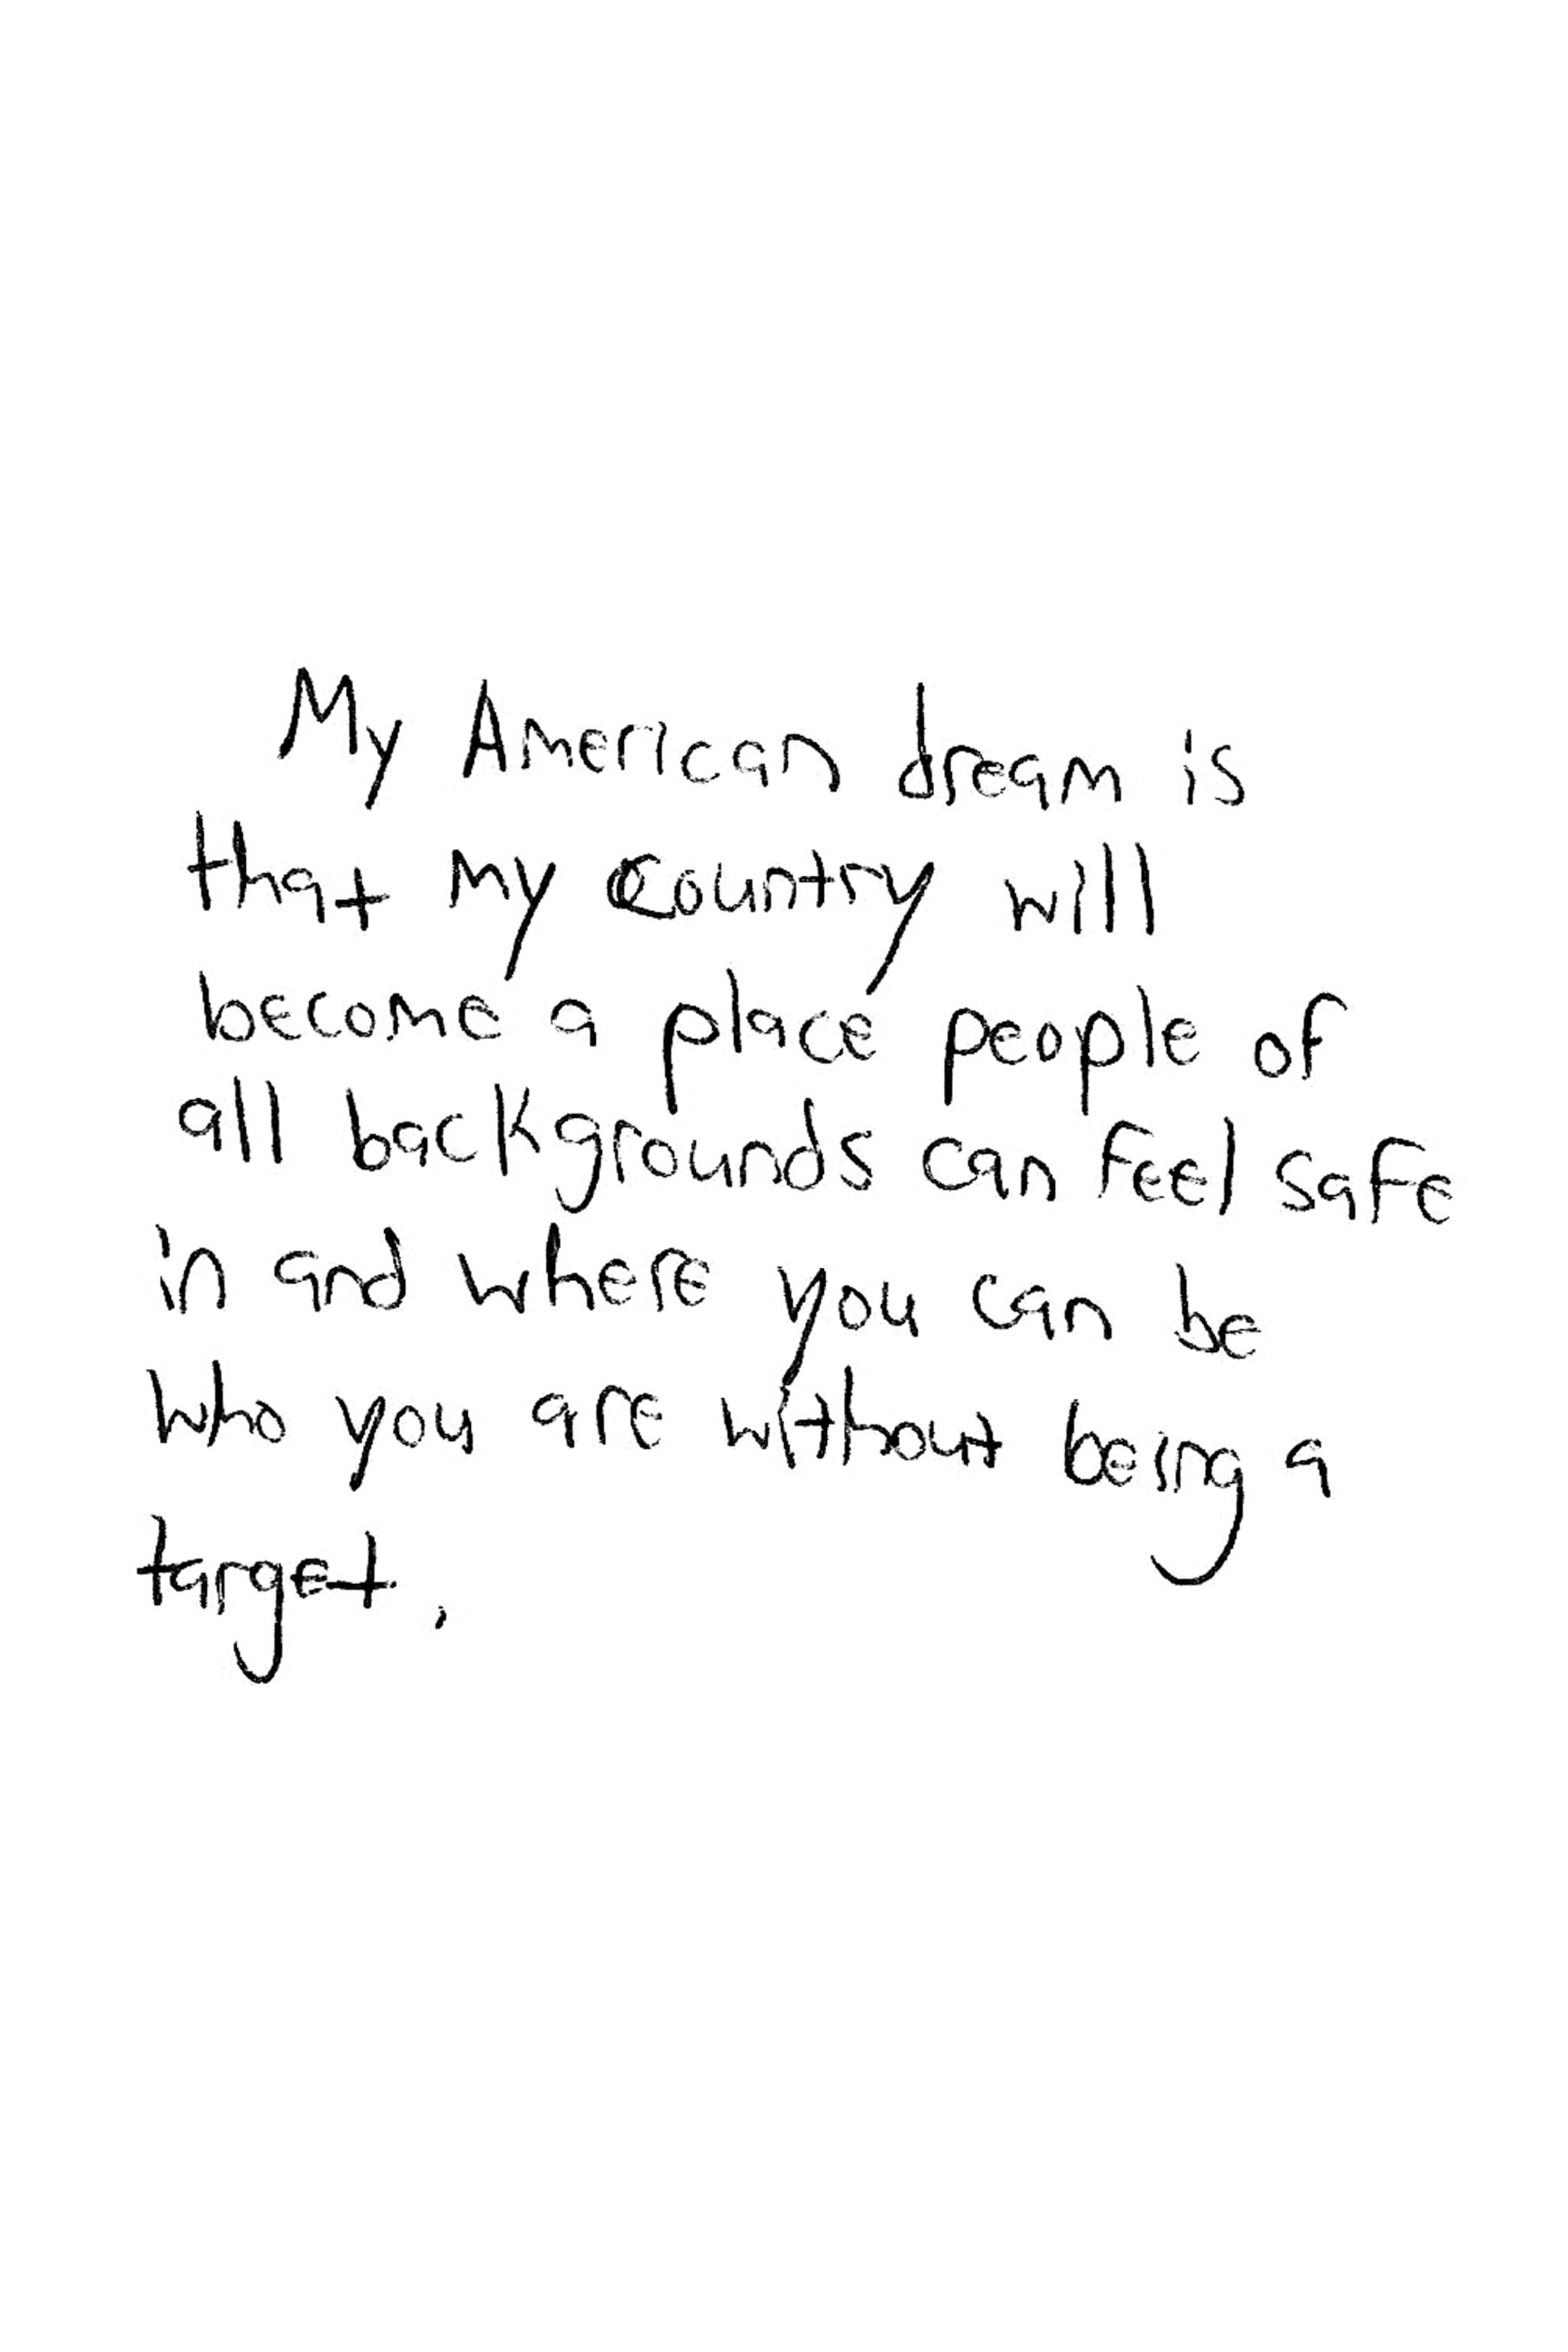 My American dream is
that my country will
become a place people of
all backgrounds can feel safe
in and where you can be
who you are without being a
target.